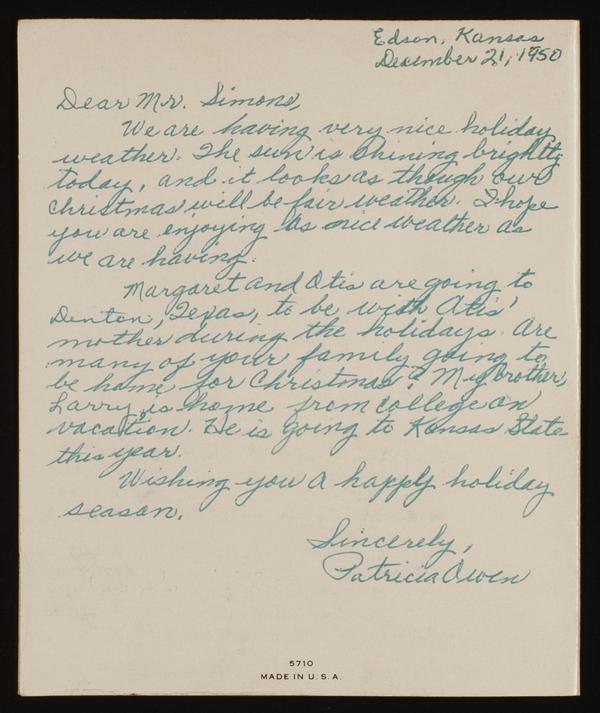 Edson, Kansas
December 21, 1950
Dear Mr. Simons,
We are having very nice holiday
weather. The sun is shining brightly
today, and it looks as though our
Christmas will be fair weather. I hope
you are enjoying as nice weather as
we are having.
Margaret and Otis are going to
Denton, Texas, to be with Otis'
mother during the holidays. Are
many of your family going to
be home for Christmas? My brother,
Larry, is home from college on
vacation. He is going to Kansas State
this year.
Wishing you a happy holiday
season.
Sincerely,
Patricia Owen
5710
MADE IN U.S.A.